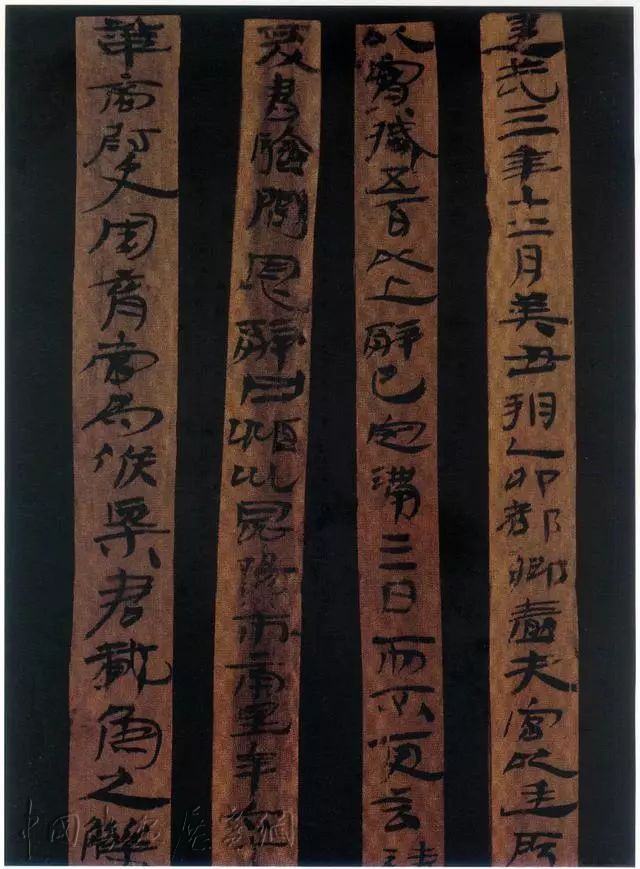 建武三年十二月癸丑朔乙卯都鄉嗇夫宮以廷所
以實臧五百以上辭已定滿三日而不更言請
爰書驗問恩辭曰潁川昆陽市南里年
華商尉史周育當為候粟君載魚之觻